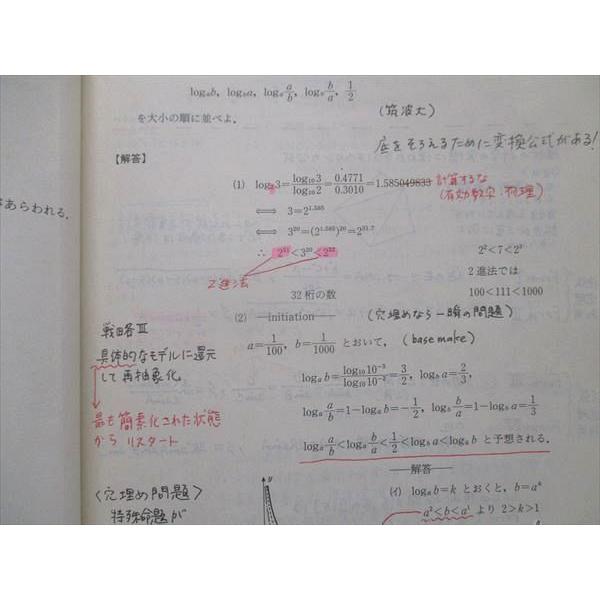 log_a b, log_b a, log_a a/b, log_b b/a, 1/2
を大小の順に並べよ.
(筑波大)
底をそろえるために変換公式がある!
【解答】
あらわれる.
(1) log₂3=log₁₀3/log₁₀2=0.4771/0.3010=1.585049833
計算するな
(有効数字:物理)
⟺ 3=2^1.585
⟺ 3^20=(2^1.585)^20=2^31.7
∴ 2^31<3^20<2^32
2進法
2²<7<2³
2進法では
100<111<1000
32桁の数
(2) ―initiation―
(穴埋めなら一瞬の問題)
a=1/100, b=1/1000 とおいて, (base make)
戦略Ⅲ
具体的なモデルに還元
して再抽象化
最も簡素化された状態
から リスタート
log_a b=log₁₀10⁻³/log₁₀10⁻²=3/2, log_b a=2/3,
log_a a/b=1-log_a b=-1/2, log_b b/a=1-log_b a=1/3
log_a a/b<log_b b/a<1/2<log_b a<log_a b と予想される.
―解答―
(イ) log_a b=k とおくと, b=a^k
a²<b<a¹ より 2>k>1
〈穴埋め問題〉
特殊命題が
y